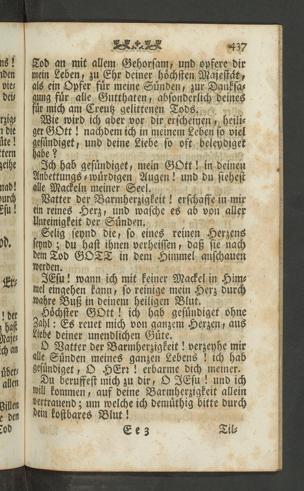 437
Tod an mit allem Gehorsam, und opfere dir
mein Leben, zu Ehr deiner höchsten Majestät,
als ein Opfer für meine Sünden, zur Danksa-
gung für alle Gutthaten, absonderlich deines
für mich am Creutz gelittenen Tods.
Wie wird ich aber vor dir erscheinen, heili-
ger GOtt! nachdem ich in meinem Leben so viel
gesündiget, und deine Liebe so oft beleydiget
habe?
Ich hab gesündiget, mein GOtt! in deinen
Anbettungs-würdigen Augen! und du siehest
alle Mackeln meiner Seel.
Vatter der Barmherzigkeit! erschaffe in mir
ein reines Herz, und wasche es ab von aller
Unreinigkeit der Sünden.
Selig seynd die, so eines reinen Herzens
seynd; du hast ihnen verheissen, daß sie nach
dem Tod GOTT in dem Himmel anschauen
werden.
JEsu! wann ich mit keiner Mackel in Him-
mel eingehen kann, so reinige mein Herz durch
wahre Buß in deinem heiligen Blut.
Höchster GOtt! ich hab gesündiget ohne
Zahl: Es reuet mich von ganzem Herzen, aus
Liebe deiner unendlichen Güte.
O Vatter der Barmherzigkeit! verzeyhe mir
alle Sünden meines ganzen Lebens! ich hab
gesündiget, O HErr! erbarme dich meiner.
Du beruffest mich zu dir, O JEsu! und ich
will kommen, auf deine Barmherzigkeit allein
vertrauend; um welche ich demüthig bitte durch
dein kostbares Blut!
E e 3 Til-